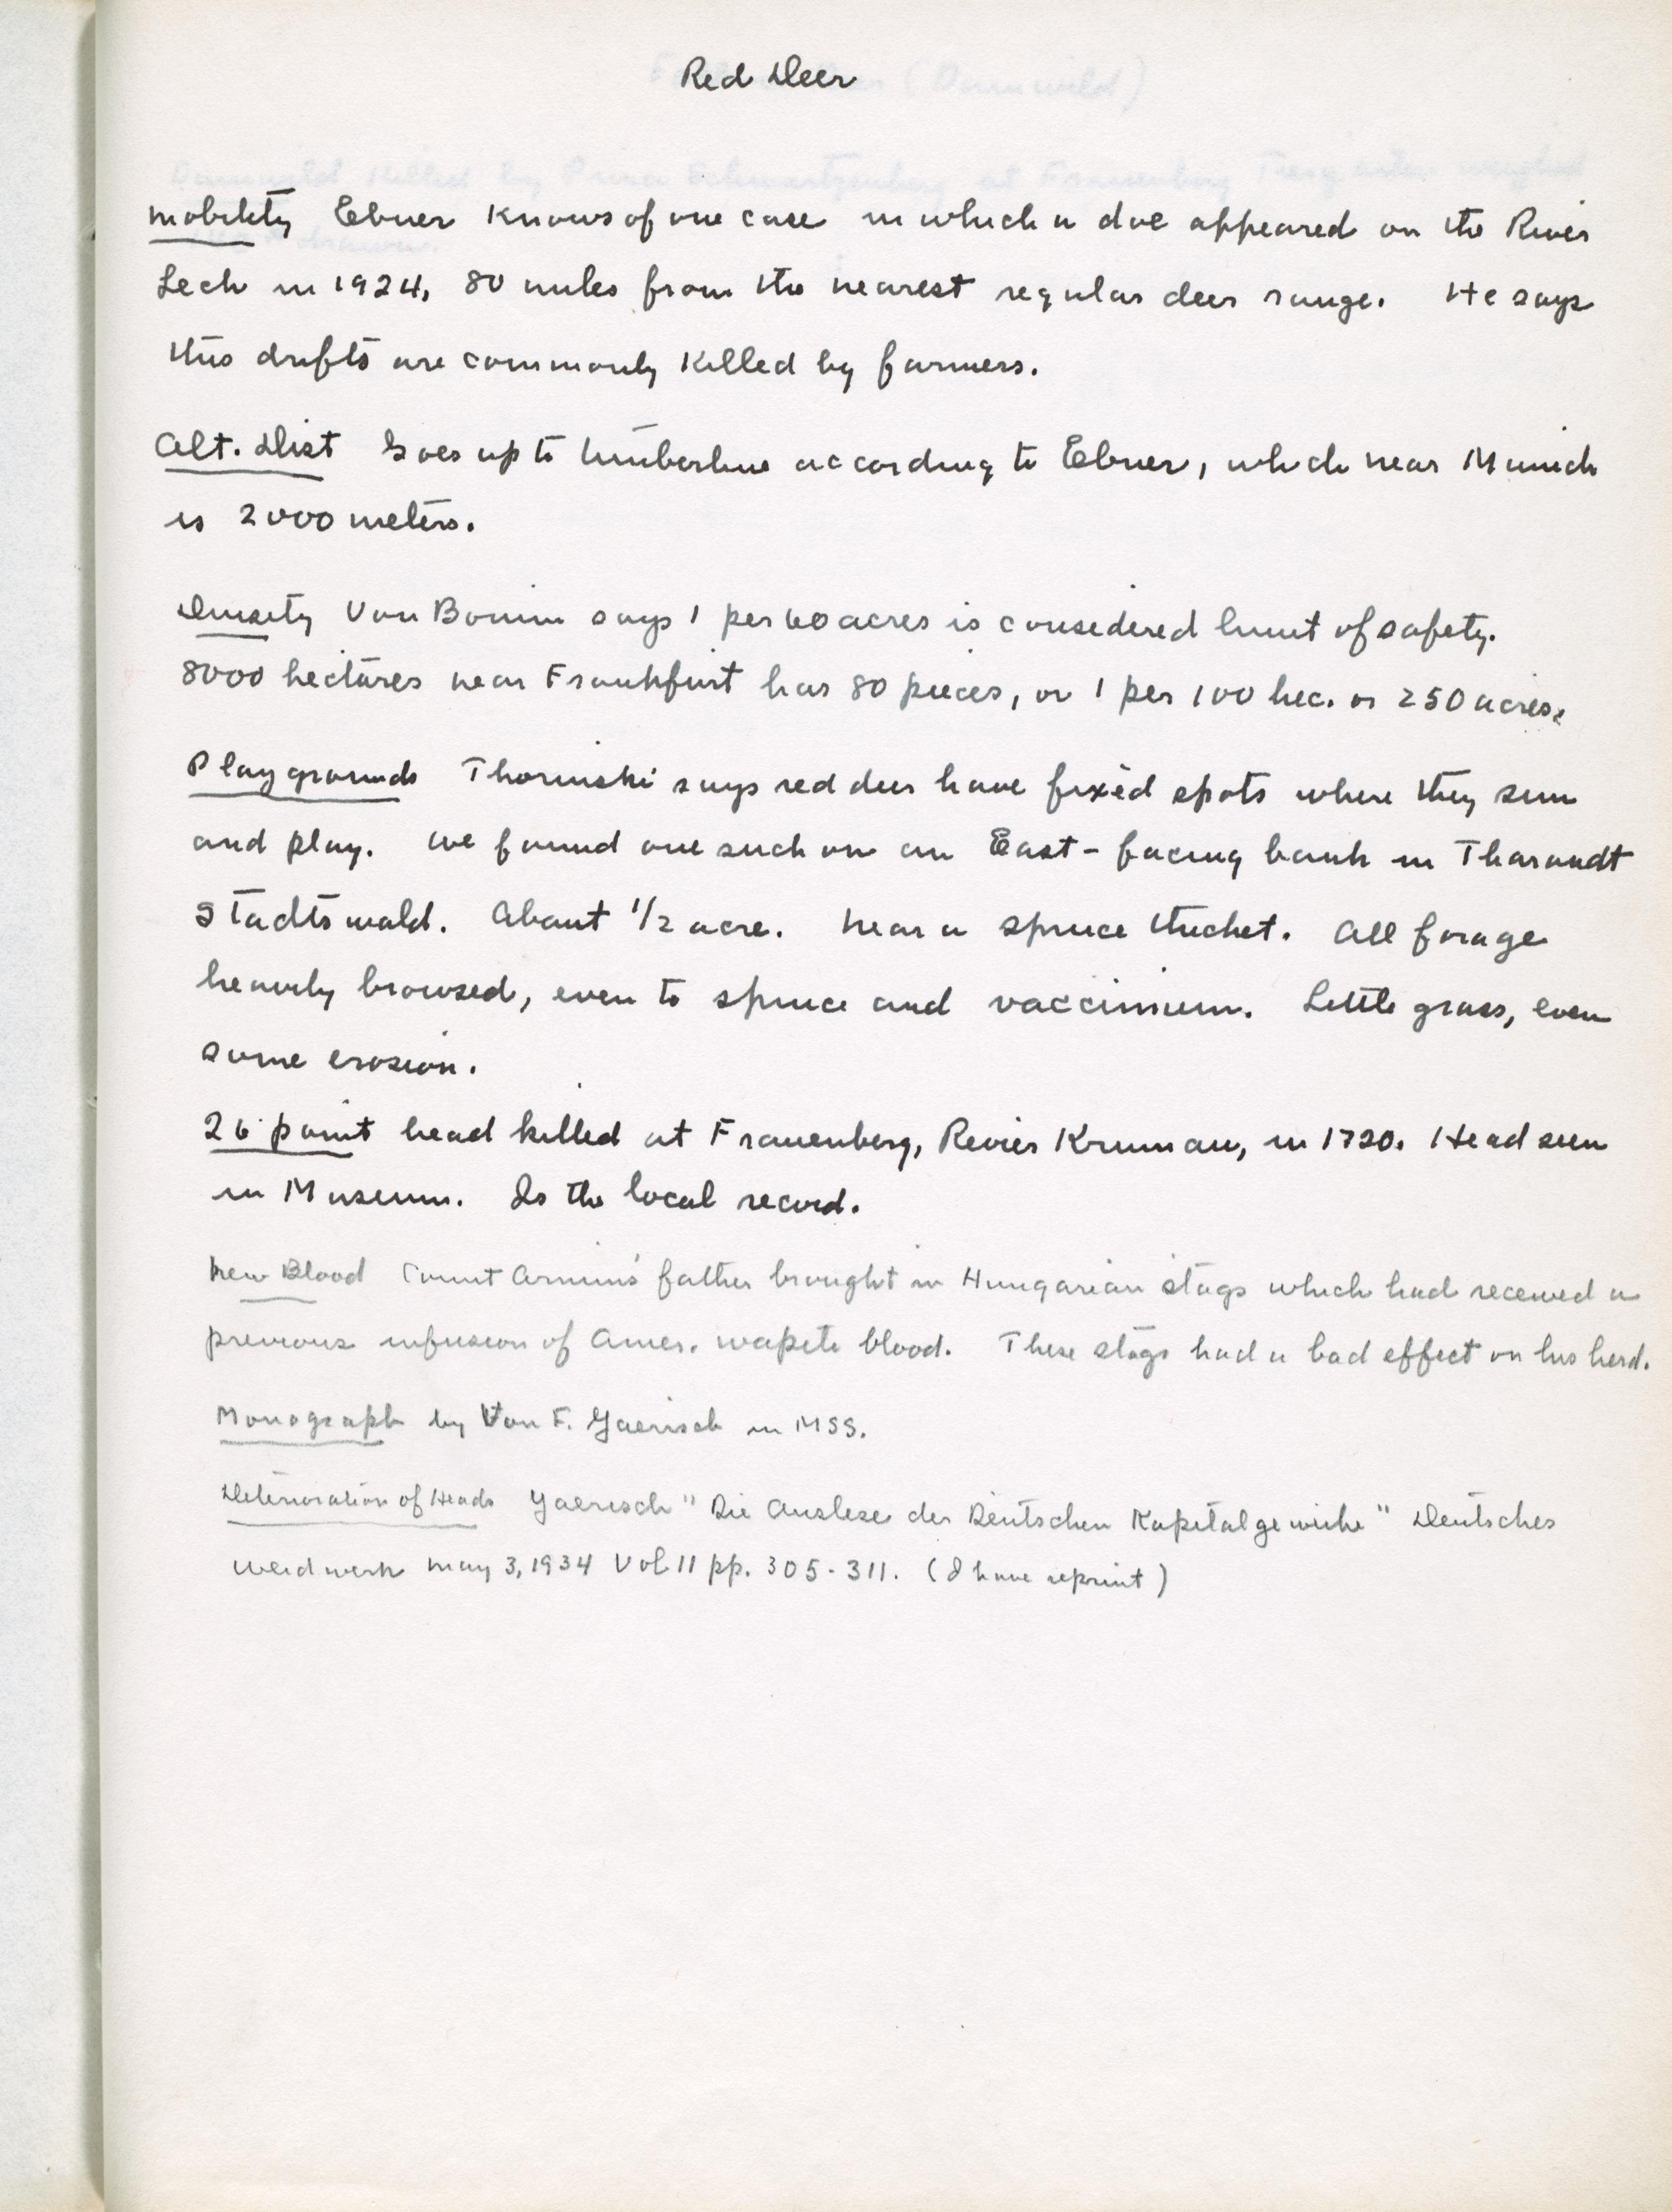 Red Deer
Mobility Ebner knows of one case in which a doe appeared on the River
Lech in 1924, 80 miles from the nearest regular deer range. He says
this drifts are commonly killed by farmers.
Alt. Dist Goes up to timberline according to Ebner, which near Munich
is 2000 meters.
Density Von Bonin says 1 per 60 acres is considered limit of safety.
8000 hectares near Frankfurt has 80 pieces, or 1 per 100 hec. or 250 acres.
Playgrounds says red deer have fixed spots where they sun
and play. We found one such on an East-facing bank in Tharandt
Stadtswald. About 1/2 acre. Near a spruce thicket. All forage
heavily browsed, even to spruce and vaccinium. Little grass, even
some erosion.
26 point head killed at Frauenberg, Revier Krumau, in 1720. Head seen
in Museum. Is the local record.
New Blood Count Arnim's father brought in Hungarian stags which had received a
previous infusion of Amer. wapiti blood. These stags had a bad effect on his herd.
Monograph by Von F. Gaerisch in MSS.
Deterioration of Heads Gaerisch "Die Auslese der Deutschen Kapitalgeweihe" Deutsches
Weidwerk May 3, 1934 Vol 11 pp. 305-311. (I have reprint)